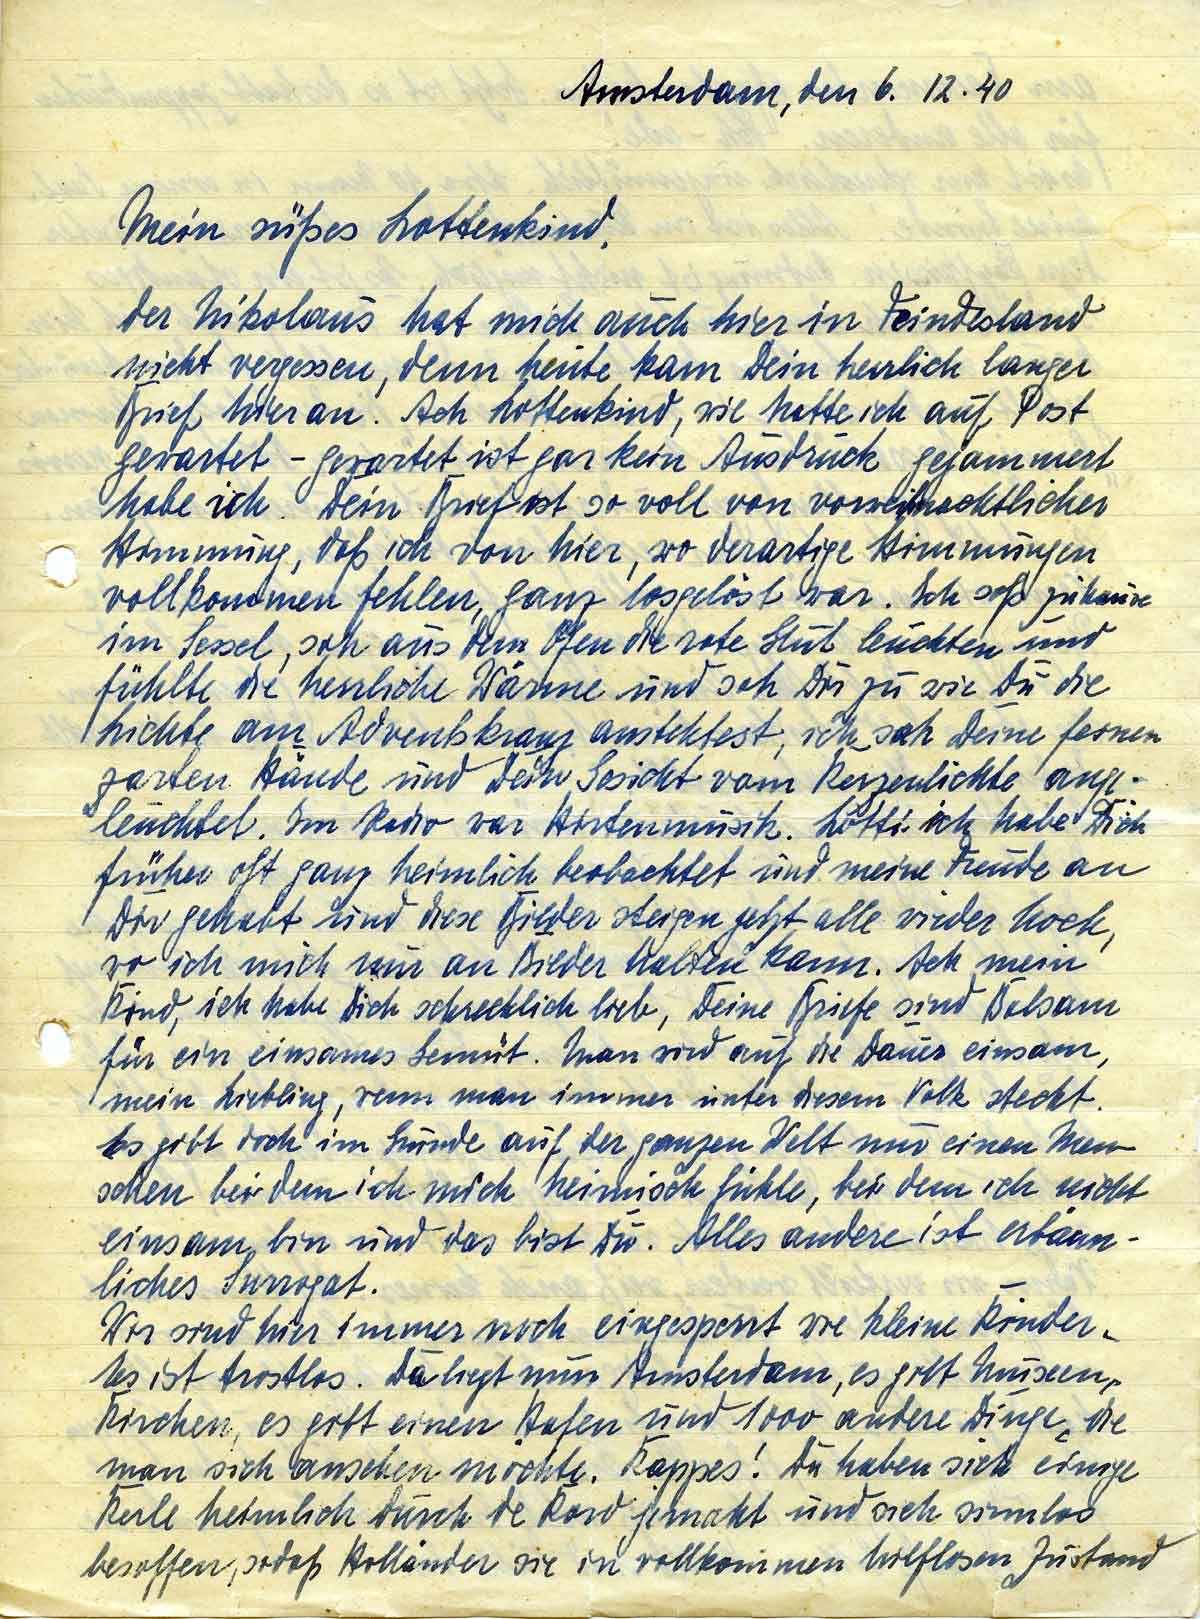 Amsterdam, den 6. 12. 40
Mein süßes Lottenkind.
Der Nikolaus hat mich auch hier in Feindesland
nicht vergessen, denn heute kam Dein herrlich langer
Brief hier an. Ach Lottenkind, wie hatte ich auf Post
gewartet – gewartet ist gar kein Ausdruck gejammert
habe ich. Dein Brief ist so voll von vorweihnachtlicher
Stimmung, daß ich von hier, wo derartige Stimmungen
vollkommen fehlen, ganz losgelöst war. Ich saß zuhause
im Sessel, sah aus dem Ofen die rote Glut leuchten und
fühlte die herrliche Wärme und sah Dir zu wie Du die
Lichte am Adventskranz anstecktest, ich sah Deine fernen
zarten Hände und Dein Gesicht vom Kerzenlichte ange-
leuchtet. Im Radio war Hirtenmusik. Lotti ich habe Dich
früher oft ganz heimlich beobachtet und meine Freude an
Dir gehabt und diese Bilder steigen jetzt alle wieder hoch,
wo ich mich nur an Bilder halten kann. Ach mein
Kind, ich habe Dich schrecklich lieb, Deine Briefe sind Balsam
für ein einsames Gemüt. Man wird auf die Dauer einsam,
mein Liebling, wenn man immer unter diesem Volk steckt.
Es gibt doch im Grunde auf der ganzen Welt nur einen Men-
schen bei dem ich mich heimisch fühle, bei dem ich nicht
einsam bin und das bist Du. Alles andere ist erbärm-
liches Surrogat.
Wir sind hier immer noch eingesperrt wie kleine Kinder.
Es ist trostlos. Da liegt nun Amsterdam, es gibt Museen,
Kirchen, es gibt einen Hafen und 1000 andere Dinge, die
man sich ansehen möchte. Kappes! Da haben sich einige
Kerle heimlich durch de Kord jemakt und sich sinnlos
besoffen, sodaß Holländer sie in vollkommen hilflosen Zustand